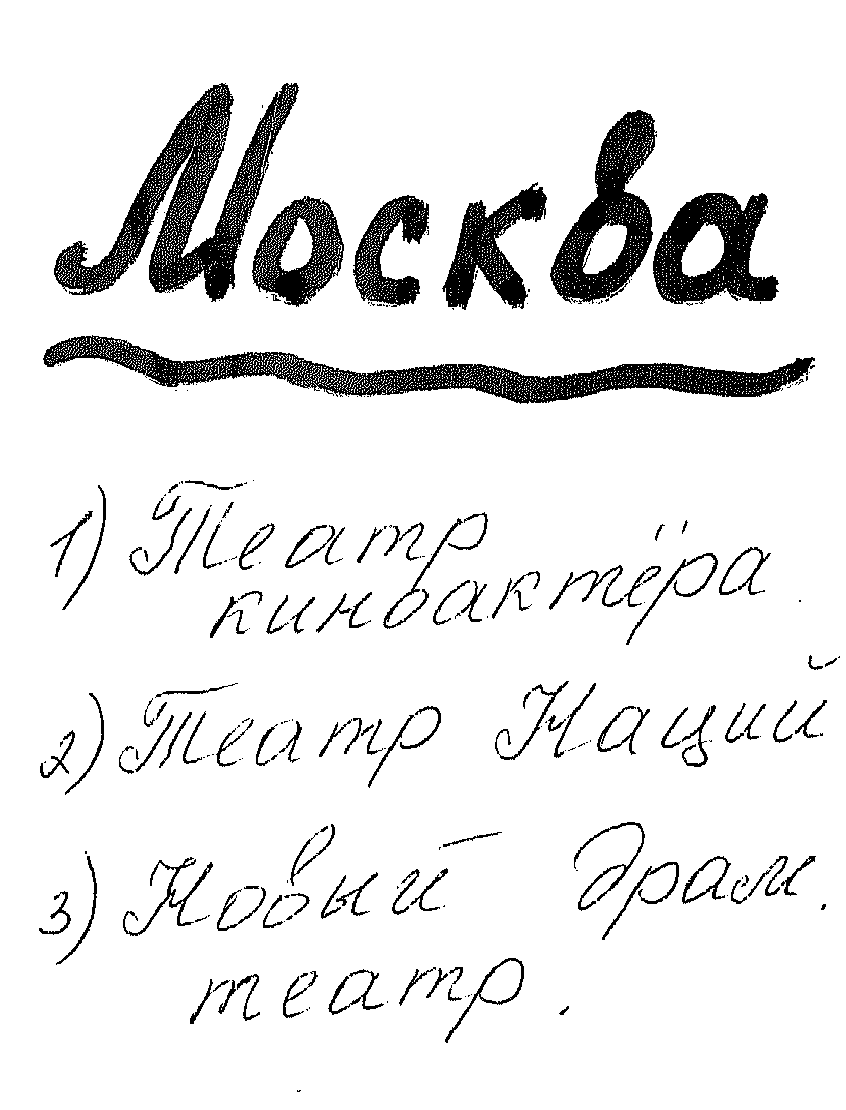 Москва
1) Театр
киноактёра
2) Театр Наций
3) Новый Драм.
театр.